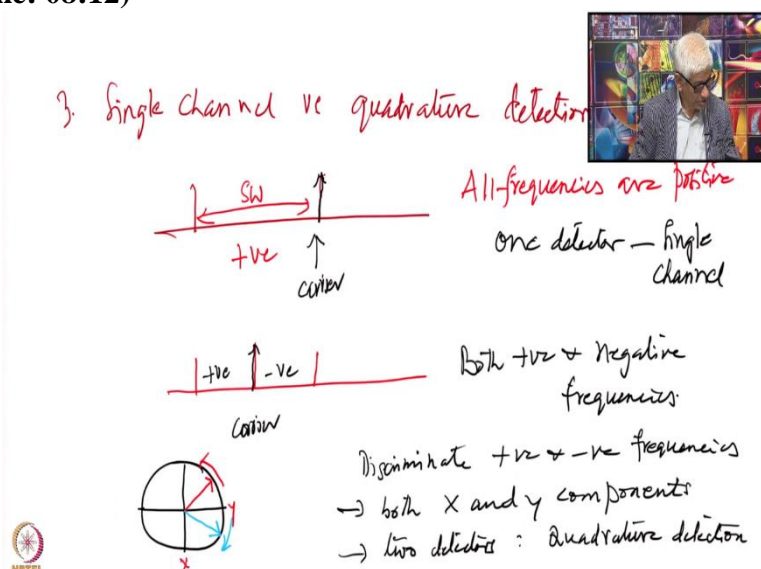 3. Single Channel vs quadrature detection
SW
+ve
carrier
All-frequencies are positive
one detector — Single
Channel
+ve -ve
Carrier
Both +ve & Negative
frequencies.
Discriminate +ve & -ve frequencies
→ both X and y components
→ two detectors : Quadrature detection
y
x
NPTEL